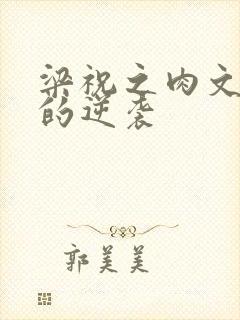 梁祝之肉文
的逆袭
郭美美